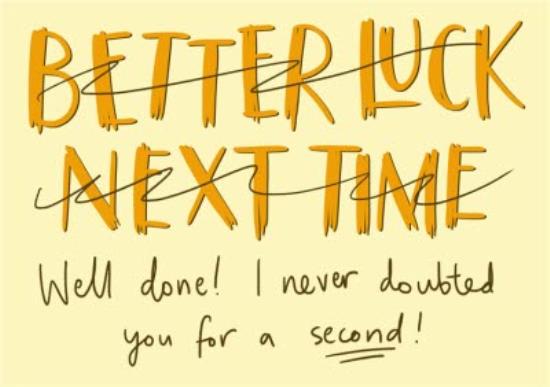 BETTER LUCK
NEXT TIME
Well done! I never doubted
you for a second!